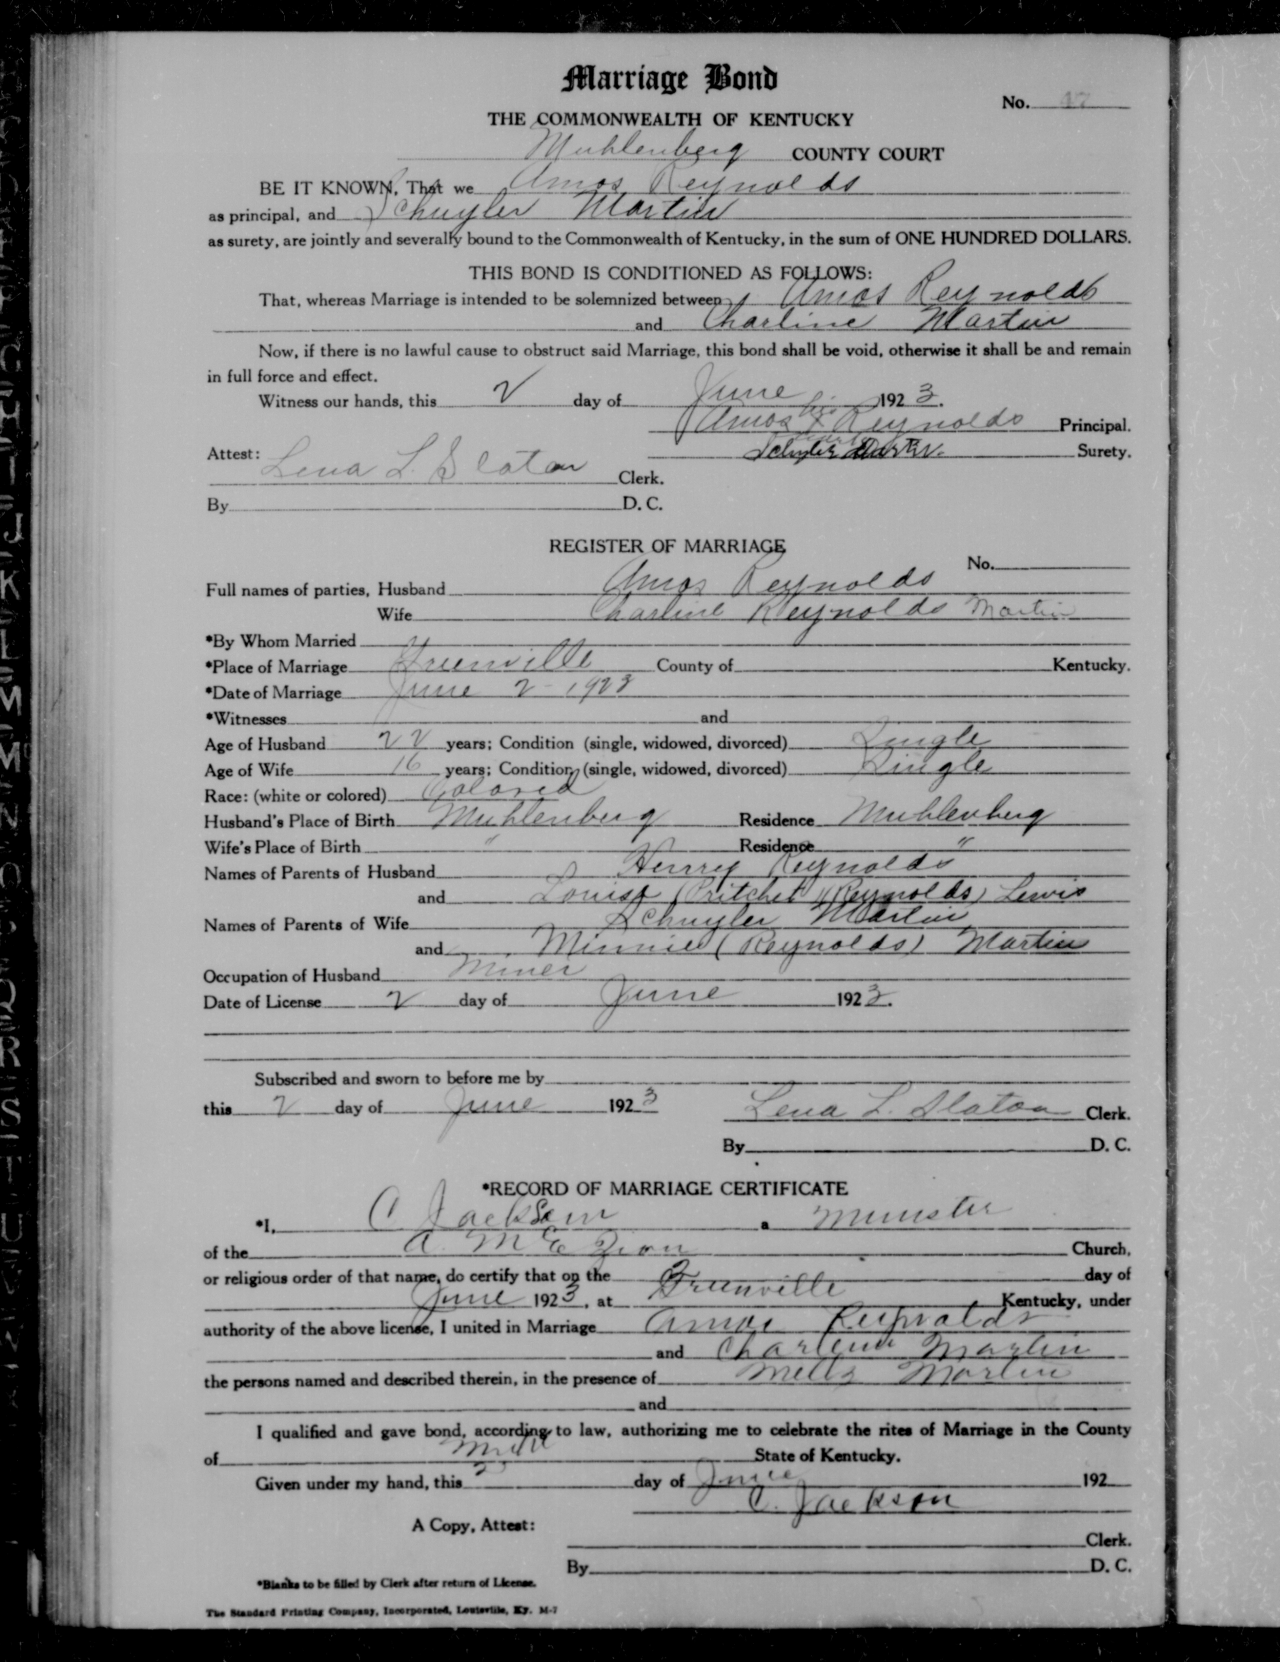 Marriage Bond
No. 47
THE COMMONWEALTH OF KENTUCKY
Muhlenberg COUNTY COURT
BE IT KNOWN, That we Amos Reynolds
as principal, and Schuyler Martin
as surety, are jointly and severally bound to the Commonwealth of Kentucky, in the sum of ONE HUNDRED DOLLARS.
THIS BOND IS CONDITIONED AS FOLLOWS:
That, whereas Marriage is intended to be solemnized between Amos Reynolds
and Charline Martin
Now, if there is no lawful cause to obstruct said Marriage, this bond shall be void, otherwise it shall be and remain
in full force and effect.
Witness our hands, this 2 day of June 1923.
Amos his x mark Reynolds Principal.
Schuyler Martin Surety.
Attest: Lena L. Slaton Clerk.
By D. C.
REGISTER OF MARRIAGE
No.
Full names of parties, Husband Amos Reynolds
Wife Charline Reynolds Martin
*By Whom Married
*Place of Marriage Greenville County of Kentucky.
*Date of Marriage June 2 - 1923
*Witnesses and
Age of Husband 22 years; Condition (single, widowed, divorced) Single
Age of Wife 16 years; Condition (single, widowed, divorced) Single
Race: (white or colored) Colored
Husband's Place of Birth Muhlenberg Residence Muhlenberg
Wife's Place of Birth " Residence "
Names of Parents of Husband Henry Reynolds
and Louisa (Pritchet) (Reynolds) Lewis
Names of Parents of Wife Schuyler Martin
and Minnie (Reynolds) Martin
Occupation of Husband Miner
Date of License 2 day of June 1923.
Subscribed and sworn to before me by
this 2 day of June 1923 Lena L. Slaton Clerk.
By D. C.
*RECORD OF MARRIAGE CERTIFICATE
*I, C Jackson a Minister
of the A. M E Zion Church,
or religious order of that name, do certify that on the 2 day of
June 1923, at Greenville Kentucky, under
authority of the above license, I united in Marriage Amos Reynolds
and Charline Martin
the persons named and described therein, in the presence of Martin
and
I qualified and gave bond, according to law, authorizing me to celebrate the rites of Marriage in the County
of State of Kentucky.
Given under my hand, this 2 day of June 192
C. Jackson
A Copy, Attest:
Clerk.
By D. C.
*Blanks to be filled by Clerk after return of License.
The Standard Printing Company, Incorporated, Louisville, Ky. M-7